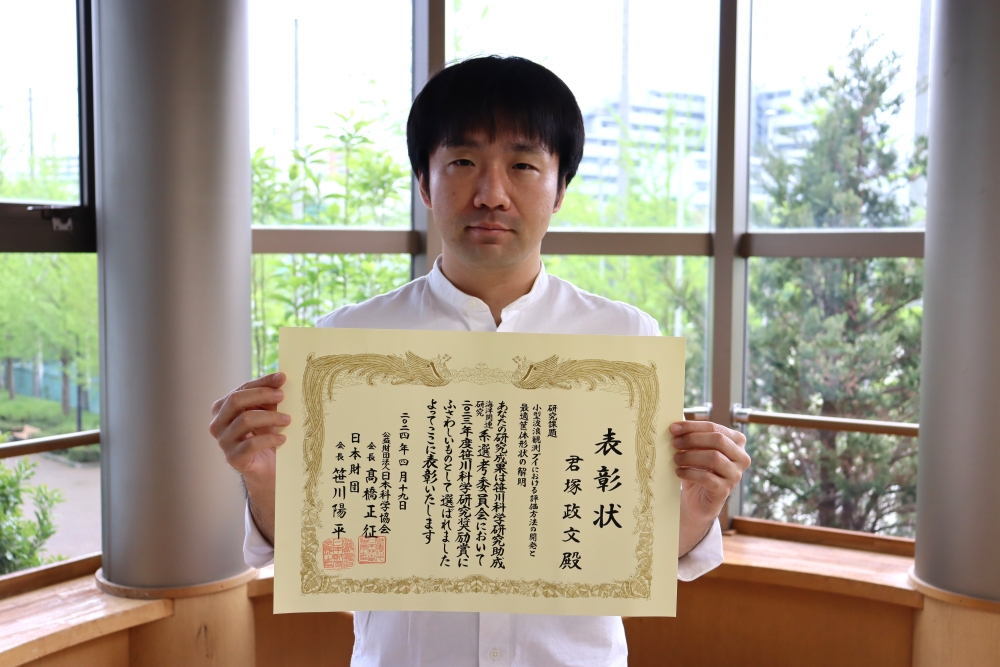 表彰状
君塚政文殿
研究課題
小型波浪観測ブイにおける評価方法の開発と
最適筐体形状の解明
あなたの研究成果は笹川科学研究助成
海洋関連研究系選考委員会において
二〇二三年度笹川科学研究奨励賞に
ふさわしいものとして選ばれました
よってここに表彰いたします
二〇二四年四月十九日
公益財団法人日本科学協会
会長 髙橋正征
日本財団
会長 笹川陽平